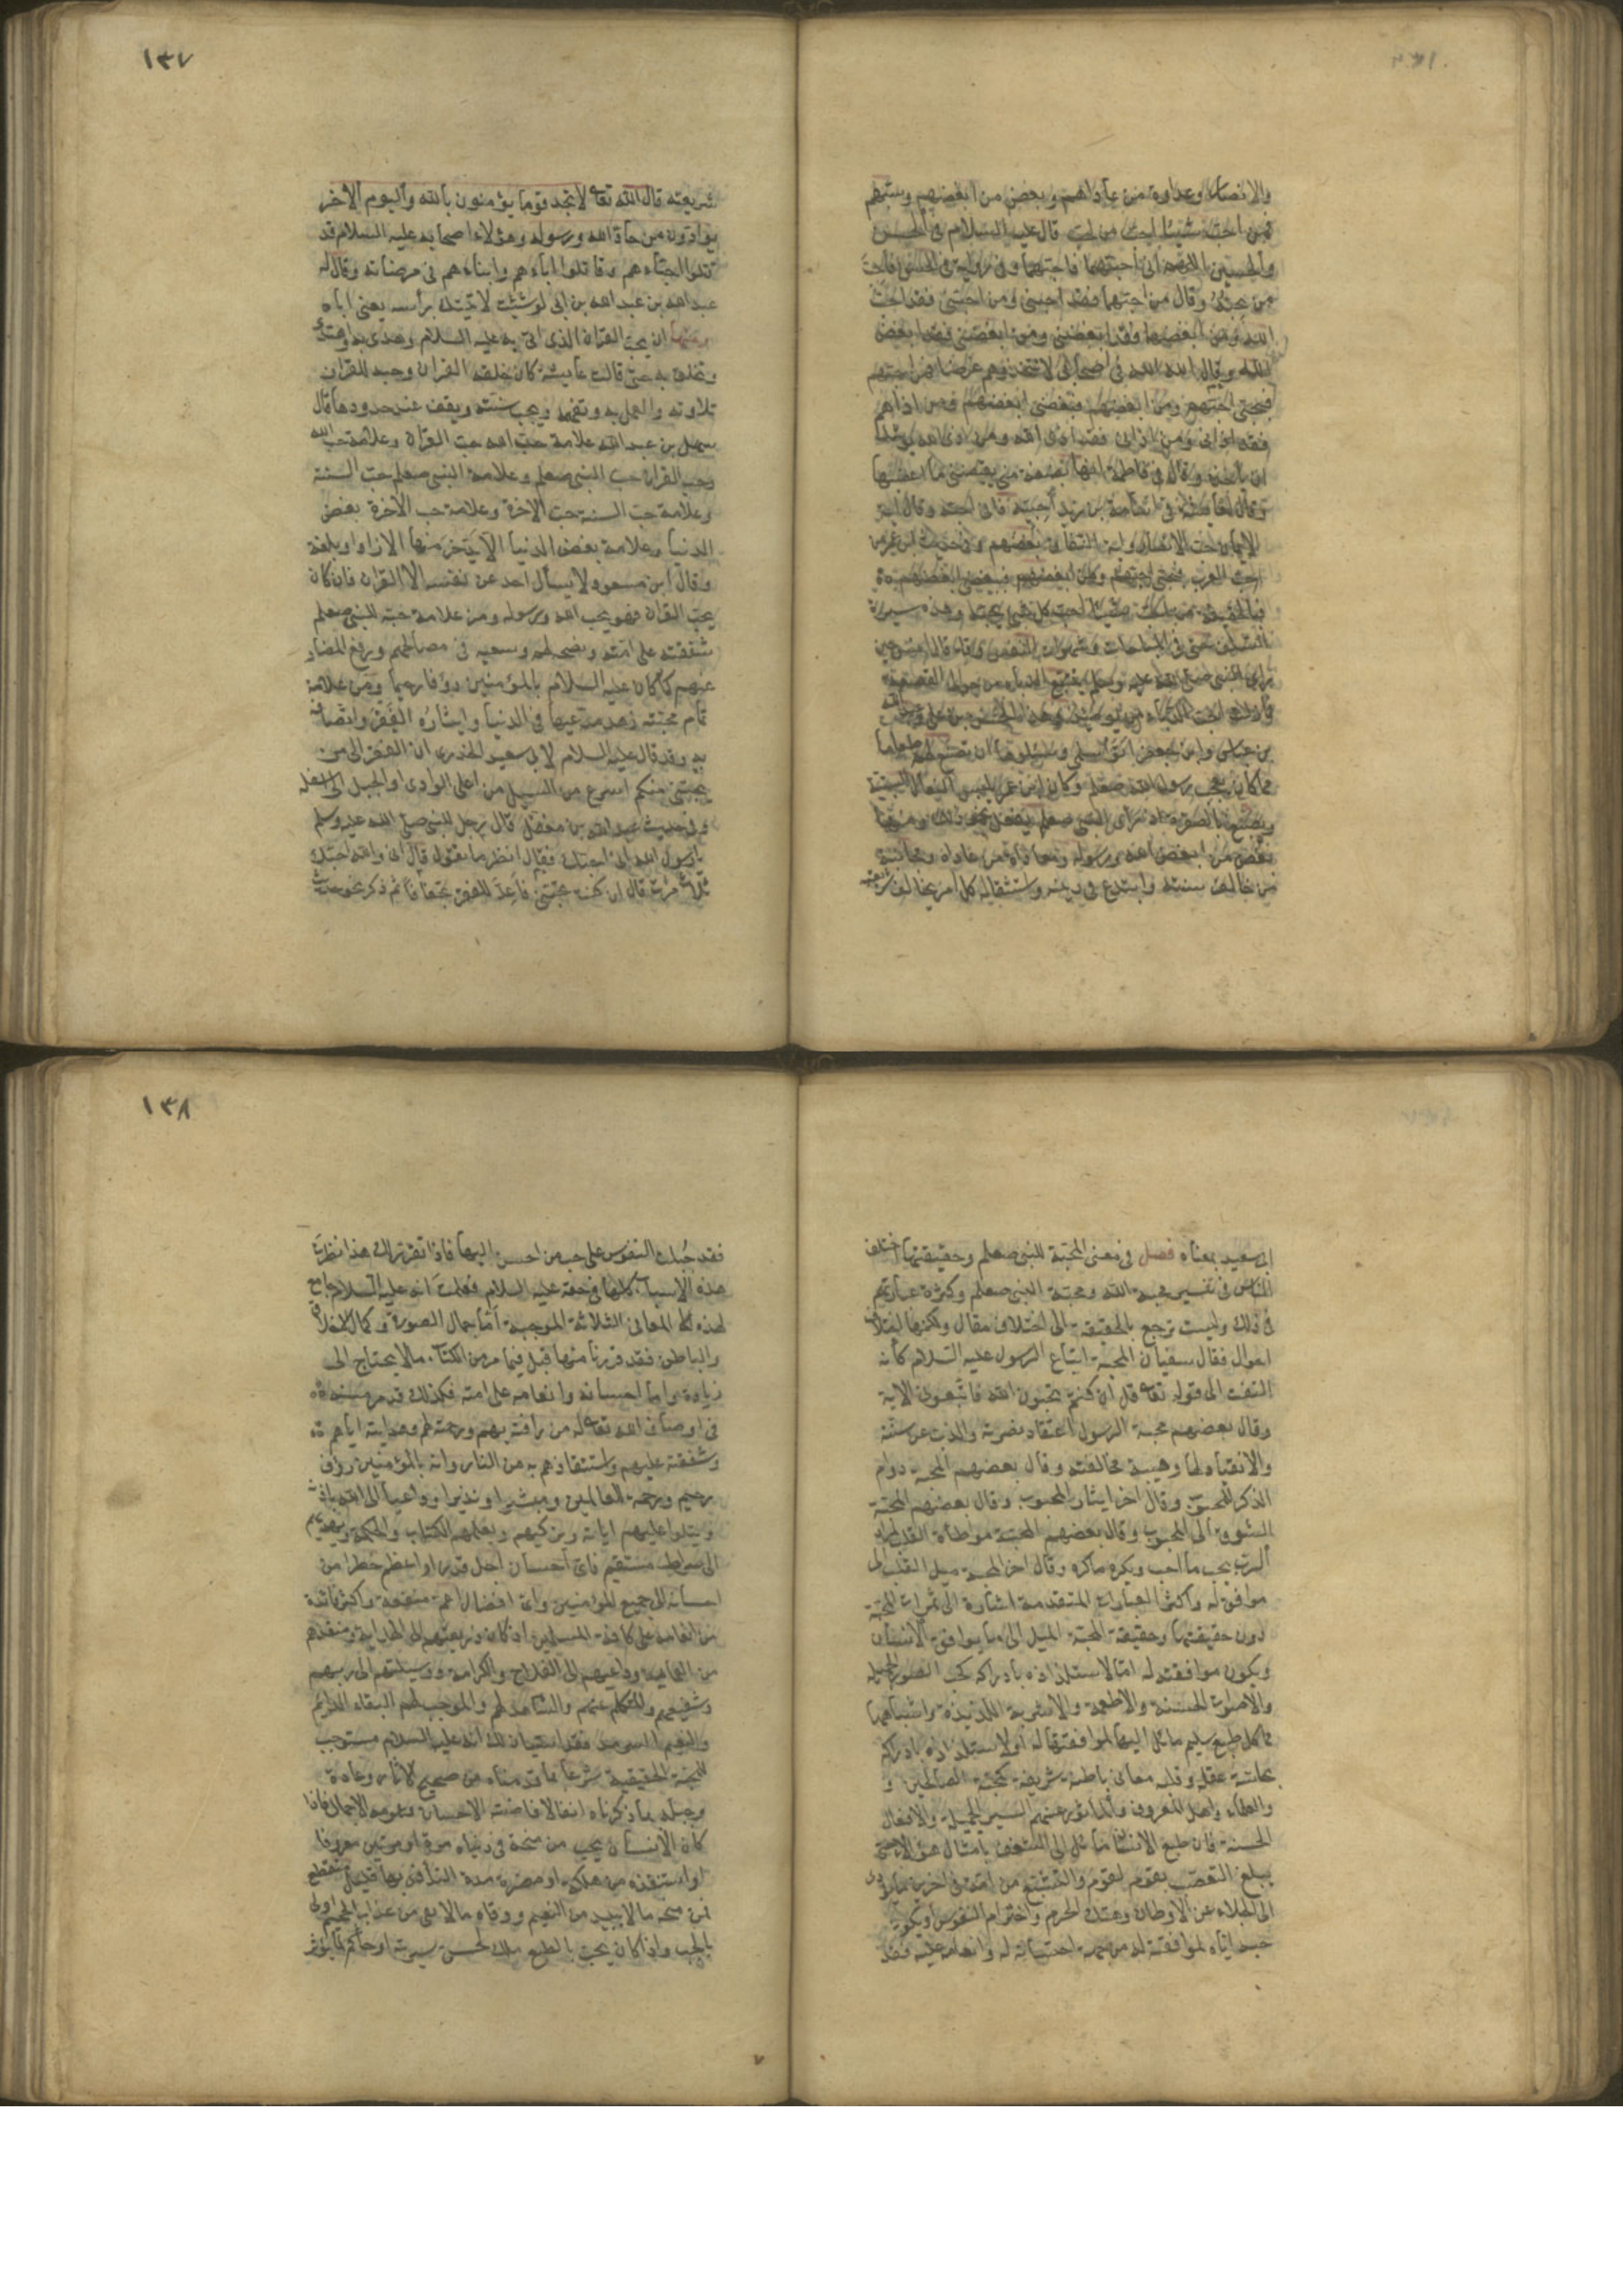 والانصار وعداوة من عاداهم وبغض من ابغضهم وسبهم
فمن احب شيئا احب من يحب قال عليه السلام في الحسن
والحسين اللهم اني احبهما فاحبهما وفي رواية في الحسن فاحب
من يحبه وقال من احبهما فقد احبني ومن احبني فقد احب
الله ومن ابغضهما فقد ابغضني ومن ابغضني فقد ابغض
الله وقال الله الله في اصحابي لا تتخذوهم غرضا فمن احبهم
فبحبي احبهم ومن ابغضهم فببغضي ابغضهم ومن اذاهم
فقد اذاني ومن اذاني فقد اذى الله ومن اذى الله يوشك
ان يأخذه وقال في فاطمة انها بضعة مني يغضبني ما اغضبها
وقال لعايشة في اسامة بن زيد احبيه فاني احبه وقال اية
الايمان حب الانصار واية النفاق بغضهم وفي حديث ابن عمر من
احب العرب فبحبي احبهم ومن ابغضهم فببغضي ابغضهم
فبالحقيقة من احب شيئا احب كل شيء يحبه وهذه سيرة
السلف حتى في المباحات وشهوات النفس وقد قال انس حين
رأى النبي صلى الله عليه وسلم يتتبع الدباء من حوالي القصعة
فما زلت احب الدباء من يومئذ وهذا الحسن بن علي وعبد الله
بن عباس وابن جعفر اتوا سلمى وسألوها ان تصنع لهم طعاما
مما كان يعجب رسول الله صلعم وكان ابن عمر يلبس النعال السبتية
ويصبغ بالصفرة اذ رأى النبي صلعم يفعل نحو ذلك ومنها
بغض من ابغض الله ورسوله ومعاداة من عاداه ومجانبة
من خالف سنته وابتدع في دينه واستثقاله كل امر يخالف شريعته
١٣٧
شريعته قال الله تعا لا تجد قوما يؤمنون بالله واليوم الاخر
يوادون من حاد الله ورسوله وهؤلاء اصحابه عليه السلام قد
قتلوا احباءهم وقاتلوا اباءهم وابناءهم في مرضاته وقال له
عبد الله بن عبد الله بن ابي لو شئت لاتيتك برأسه يعني اباه
ومنها ان يحب القران الذي اتى به عليه السلام وهدى به واهتدى
وتخلق به حتى قالت عايشة كان خلقه القران وحبه للقران
تلاوته والعمل به وتفهمه ويحب سنته ويقف عند حدودها قال
سهل بن عبد الله علامة حب الله حب القران وعلامة حب الله
وحب القران حب النبي صلعم وعلامة النبي صلعم حب السنة
وعلامة حب السنة حب الاخرة وعلامة حب الاخرة بغض
الدنيا وعلامة بغض الدنيا الا يدخر منها الا زادا وبلغة
وقال ابن مسعود لا يسأل احد عن نفسه الا القران فان كان
يحب القران فهو يحب الله ورسوله ومن علامة حبه للنبي صلعم
شفقته على امته ونصحه لهم وسعيه في مصالحهم ورفع المضار
عنهم كما كان عليه السلام بالمؤمنين رؤفا رحيما ومن علامة
تمام محبته زهد مدعيها في الدنيا وايثاره الفقر واتصافه
به وقد قال عليه السلام لابي سعيد الخدري ان الفقر الى من
يحبني منكم اسرع من السيل من اعلى الوادي او الجبل الى اسفله
وفي حديث عبد الله بن مغفل قال رجل للنبي صلى الله عليه وسلم
يا رسول الله اني احبك فقال انظر ما تقول قال اني والله احبك
ثلاث مرات قال ان كنت تحبني فاعد للفقر تجفافا ثم ذكر نحو حديث
ابي سعيد بمعناه فصل في معنى المحبة للنبي صلعم وحقيقتها اختلف
الناس في تفسير محبة الله ومحبة النبي صلعم وكثرة عباراتهم
في ذلك وليست ترجع بالحقيقة الى اختلاف مقال ولكنها اختلاف
احوال فقال سفيان المحبة اتباع الرسول عليه السلام كأنه
التفت الى قوله تعا قل ان كنتم تحبون الله فاتبعوني الاية
وقال بعضهم محبة الرسول اعتقاد نصرته والذب عن سنته
والانقياد لها وهيبة مخالفته وقال بعضهم المحبة دوام
الذكر للمحبوب وقال اخر ايثار المحبوب وقال بعضهم المحبة
الشوق الى المحبوب وقال بعضهم المحبة مواطأة القلب لمراد
الرب يحب ما احب ويكره ما كره وقال اخر المحبة ميل القلب الى
موافق له واكثر العبارات المتقدمة اشارة الى ثمرات المحبة
دون حقيقتها وحقيقة المحبة الميل الى ما يوافق الانسان
ويكون موافقته له اما لاستلذاذه بادراكه كحب الصور الجميلة
والاصوات الحسنة والاطعمة والاشربة اللذيذة واشباهها
مما كل طبع سليم مائل اليها لموافقتها له او لاستلذاذه بادراكه
بحاسة عقله وقلبه معاني باطنة شريفة كمحبة الصالحين و
والعلماء واهل المعروف والمأثور عنهم السير الجميلة والافعال
الحسنة فان طبع الانسان مائل الى الشغف بامثال هؤلاء حتى
يبلغ التعصب بقوم لقوم والتشيع من امة في اخرين ما يؤدي
الى الجلاء عن الاوطان وهتك الحرم واخترام النفوس او يكون
حبه اياه لموافقته له من جهة احسانه له وانعامه عليه فقد
١٣٨
فقد جبلت النفوس على حب من احسن اليها فاذا تقرر لك هذا نظرت
هذه الاسباب كلها في حقه عليه السلام فعلمت انه عليه السلام جامع
لهذه المعاني الثلاثة الموجبة اما جمال الصورة وكمال الاخلاق
والباطن فقد قررنا منها قبل فيما مر من الكتاب ما لا يحتاج الى
زيادة واما احسانه وانعامه على امته فكذلك قد مر منه
في اوصاف الله تعا له من رافته بهم ورحمته لهم وهدايته اياهم
وشفقته عليهم واستنقاذهم به من النار وانه بالمؤمنين رؤف
رحيم ورحمة للعالمين ومبشرا ونذيرا وداعيا الى الله باذنه
ويتلوا عليهم اياته ويزكيهم ويعلمهم الكتاب والحكمة ويهديهم
الى صراط مستقيم فاي احسان اجل قدرا واعظم خطرا من
احسانه الى جميع المؤمنين واي افضال اعم منفعة واكثر فائدة
من انعامه على كافة المسلمين اذ كان ذريعتهم الى الهداية ومنقذهم
من العماية وداعيهم الى الفلاح والكرامة ووسيلتهم الى ربهم
وشفيعهم والمتكلم عنهم والشاهد لهم والموجب لهم البقاء الدائم
والنعيم السرمد فقد استبان لك انه عليه السلام مستوجب
للمحبة الحقيقية شرعا بما قدمناه من صحيح الاثار وعادة
وجبلة بما ذكرناه انفا لافاضته الاحسان وعمومه الاجمال فاذا
كان الانسان يحب من منحه في دنياه مرة او مرتين معروفا
او استنقذه من هلكة او مضرة مدة التأذي بها قليل منقطع
فمن منحه ما لا يبيد من النعيم ووقاه ما لا يفنى من عذاب الجحيم اولى
بالحب واذا كان يحب بالطبع ملك لحسن سيرته او حاكم لما يؤثر